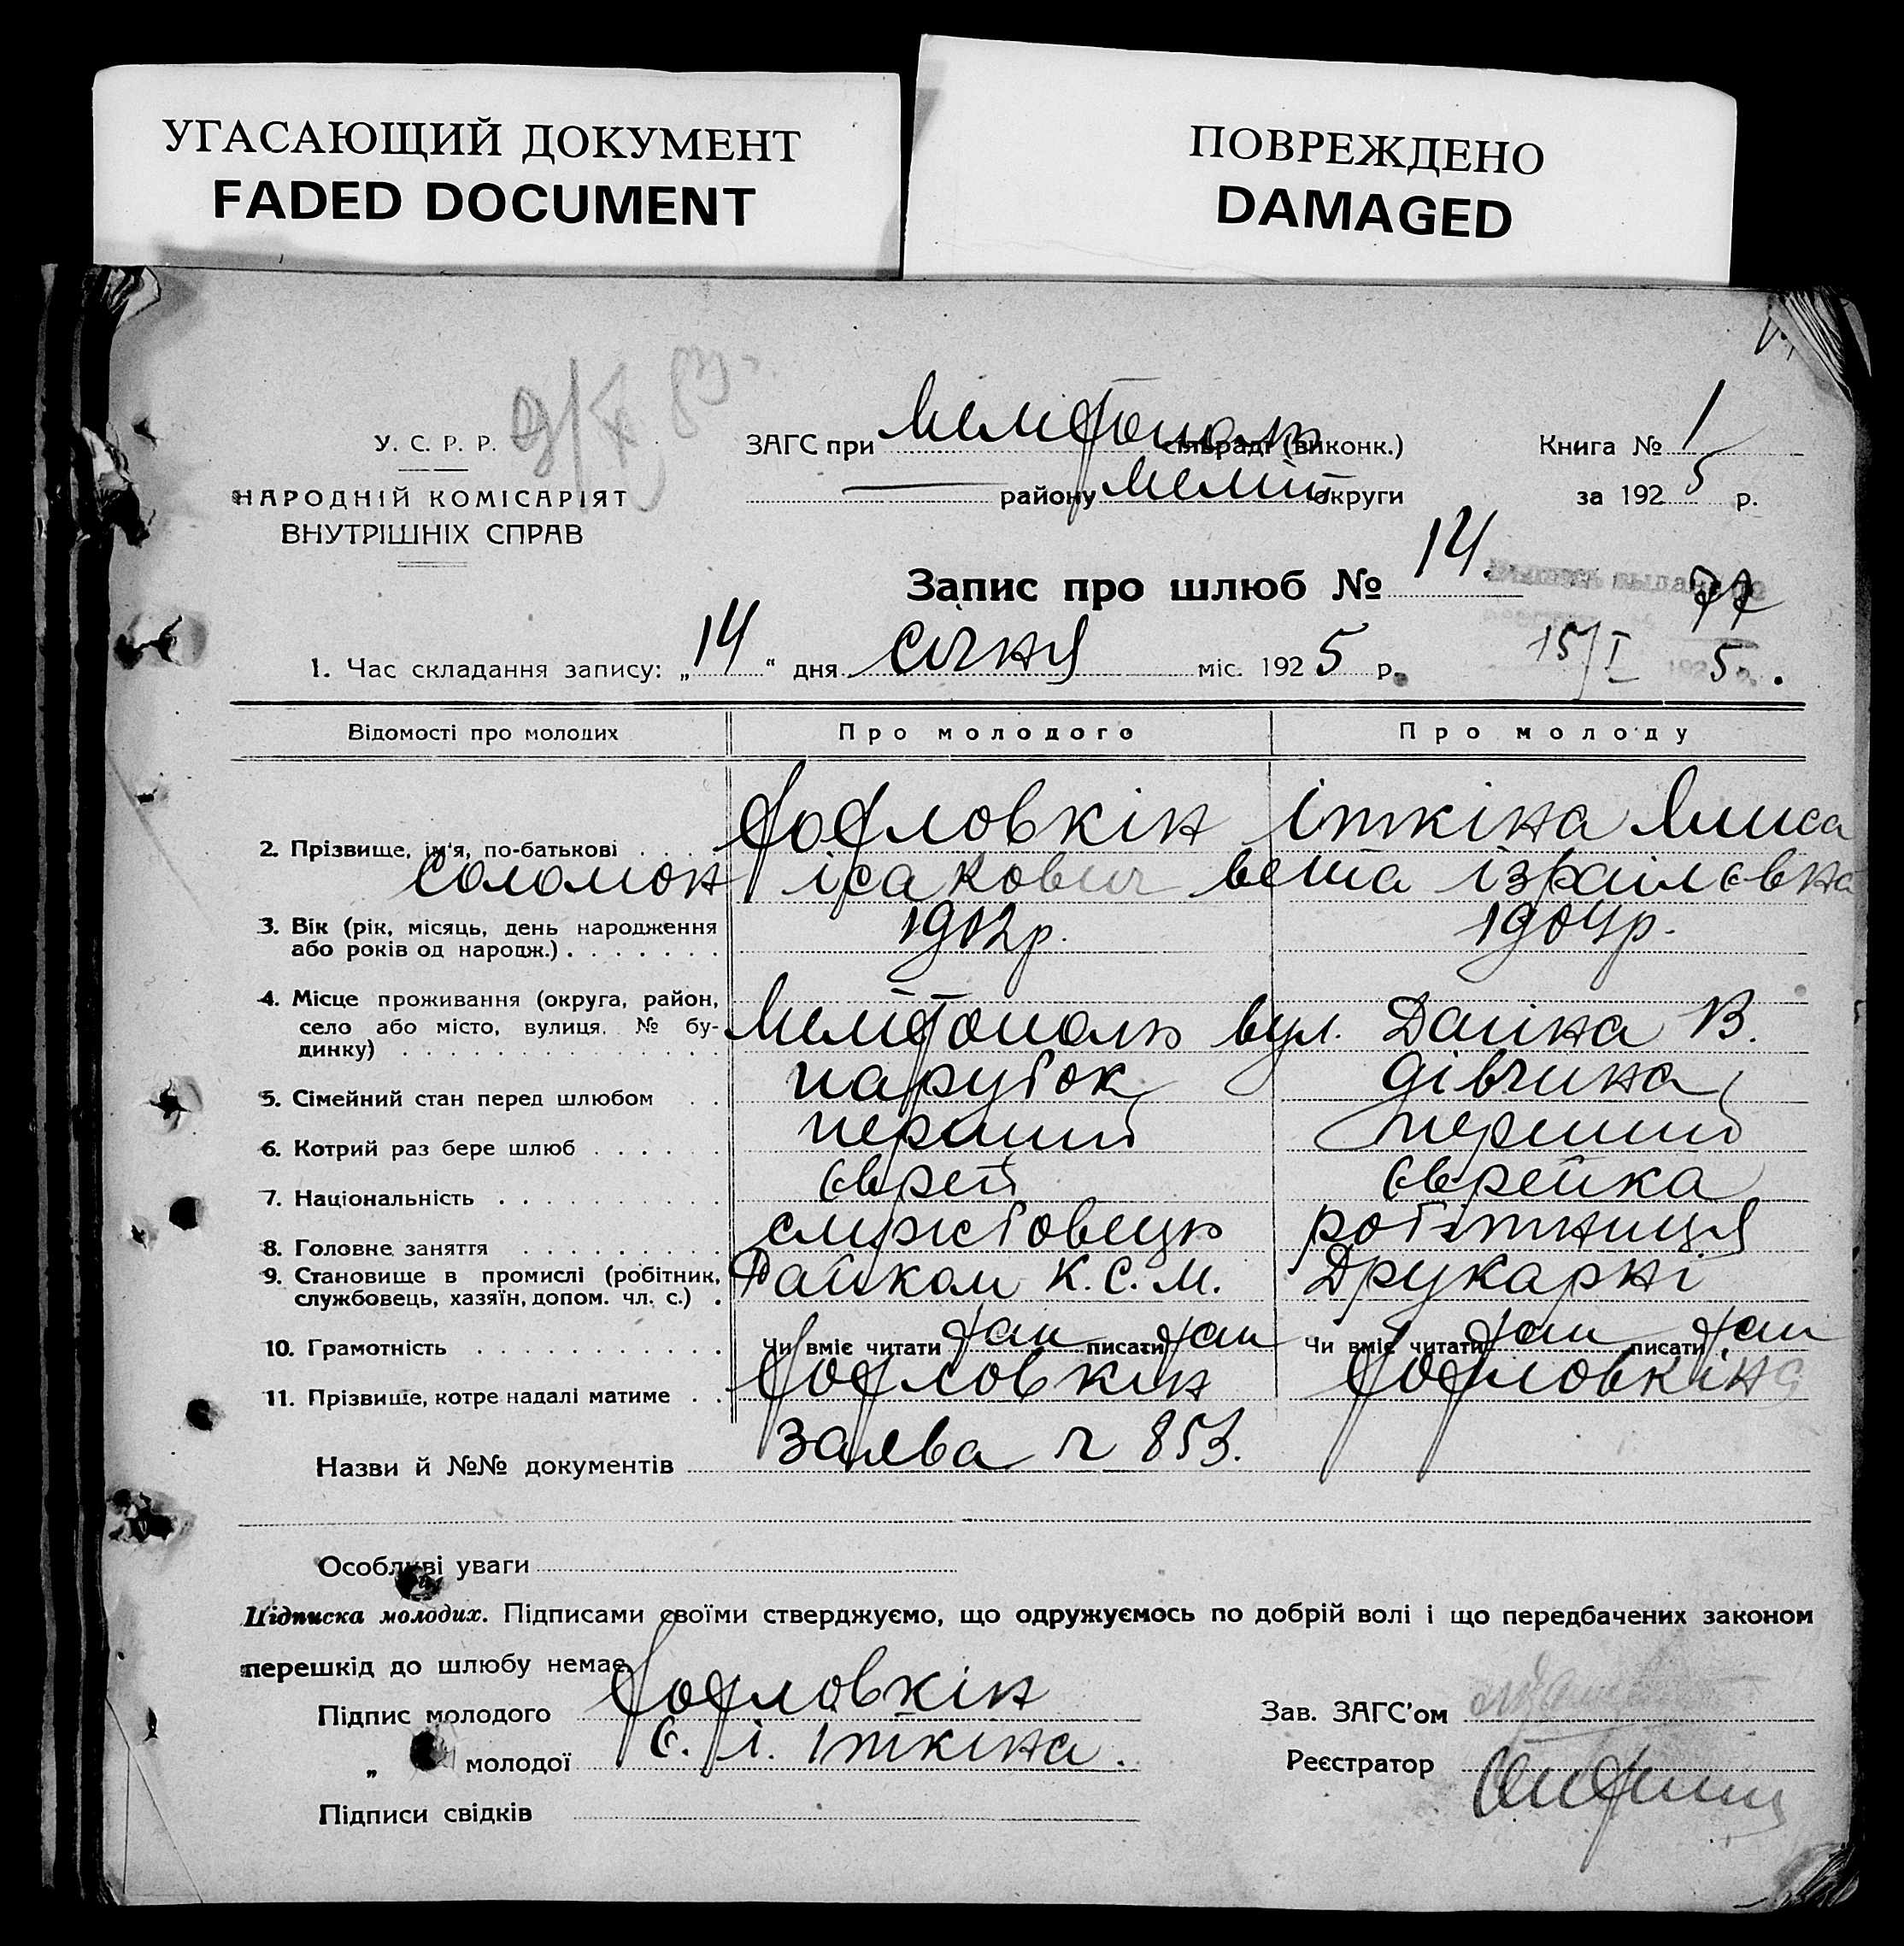 УГАСАЮЩИЙ ДОКУМЕНТ
FADED DOCUMENT
ПОВРЕЖДЕНО
DAMAGED
У. С. Р. Р.
НАРОДНІЙ КОМІСАРІЯТ
ВНУТРІШНІХ СПРАВ
ЗАГС при Мелітополь сільраді (виконк.)
району Меліт округи
Книга № 1
за 1925 р.
Запис про шлюб № 14.
77
1. Час складання запису: „14“ дня січня міс. 1925 р.
15/I 1925 р.
Відомості про молодих Про молодого Про молоду
2. Прізвище, ім'я, по-батькові . . . . Іткіна
Соломон Ісакович Ізраілєвна
3. Вік (рік, місяць, день народження 1902р. 1904р.
або років од народж.) . . . . . . .
4. Місце проживання (округа, район,
село або місто, вулиця. № бу- Мелітополь вул. В.
динку) . . . . . . . . . . . . .
5. Сімейний стан перед шлюбом . . парубок дівчина
6. Котрий раз бере шлюб . . . . . . перший перший
7. Національність . . . . . . . . . . Єврей Єврейка
8. Головне заняття . . . . . . . . . службовець робітниця
9. Становище в промислі (робітник, Райком К.С.М. Друкарні
службовець, хазяїн, допом. чл. с.) .
10. Грамотність . . . . . . . . . . . Чи вміє читати так писати так Чи вміє читати так писати так
11. Прізвище, котре надалі матиме . .
Назви й №№ документів Заява ч 853.
Особливі уваги
Підписка молодих. Підписами своїми стверджуємо, що одружуємось по добрій волі і що передбачених законом
перешкід до шлюбу немає.
Підпис молодого
„ молодої Є. І. Іткіна.
Підписи свідків
Зав. ЗАГС'ом
Реєстратор